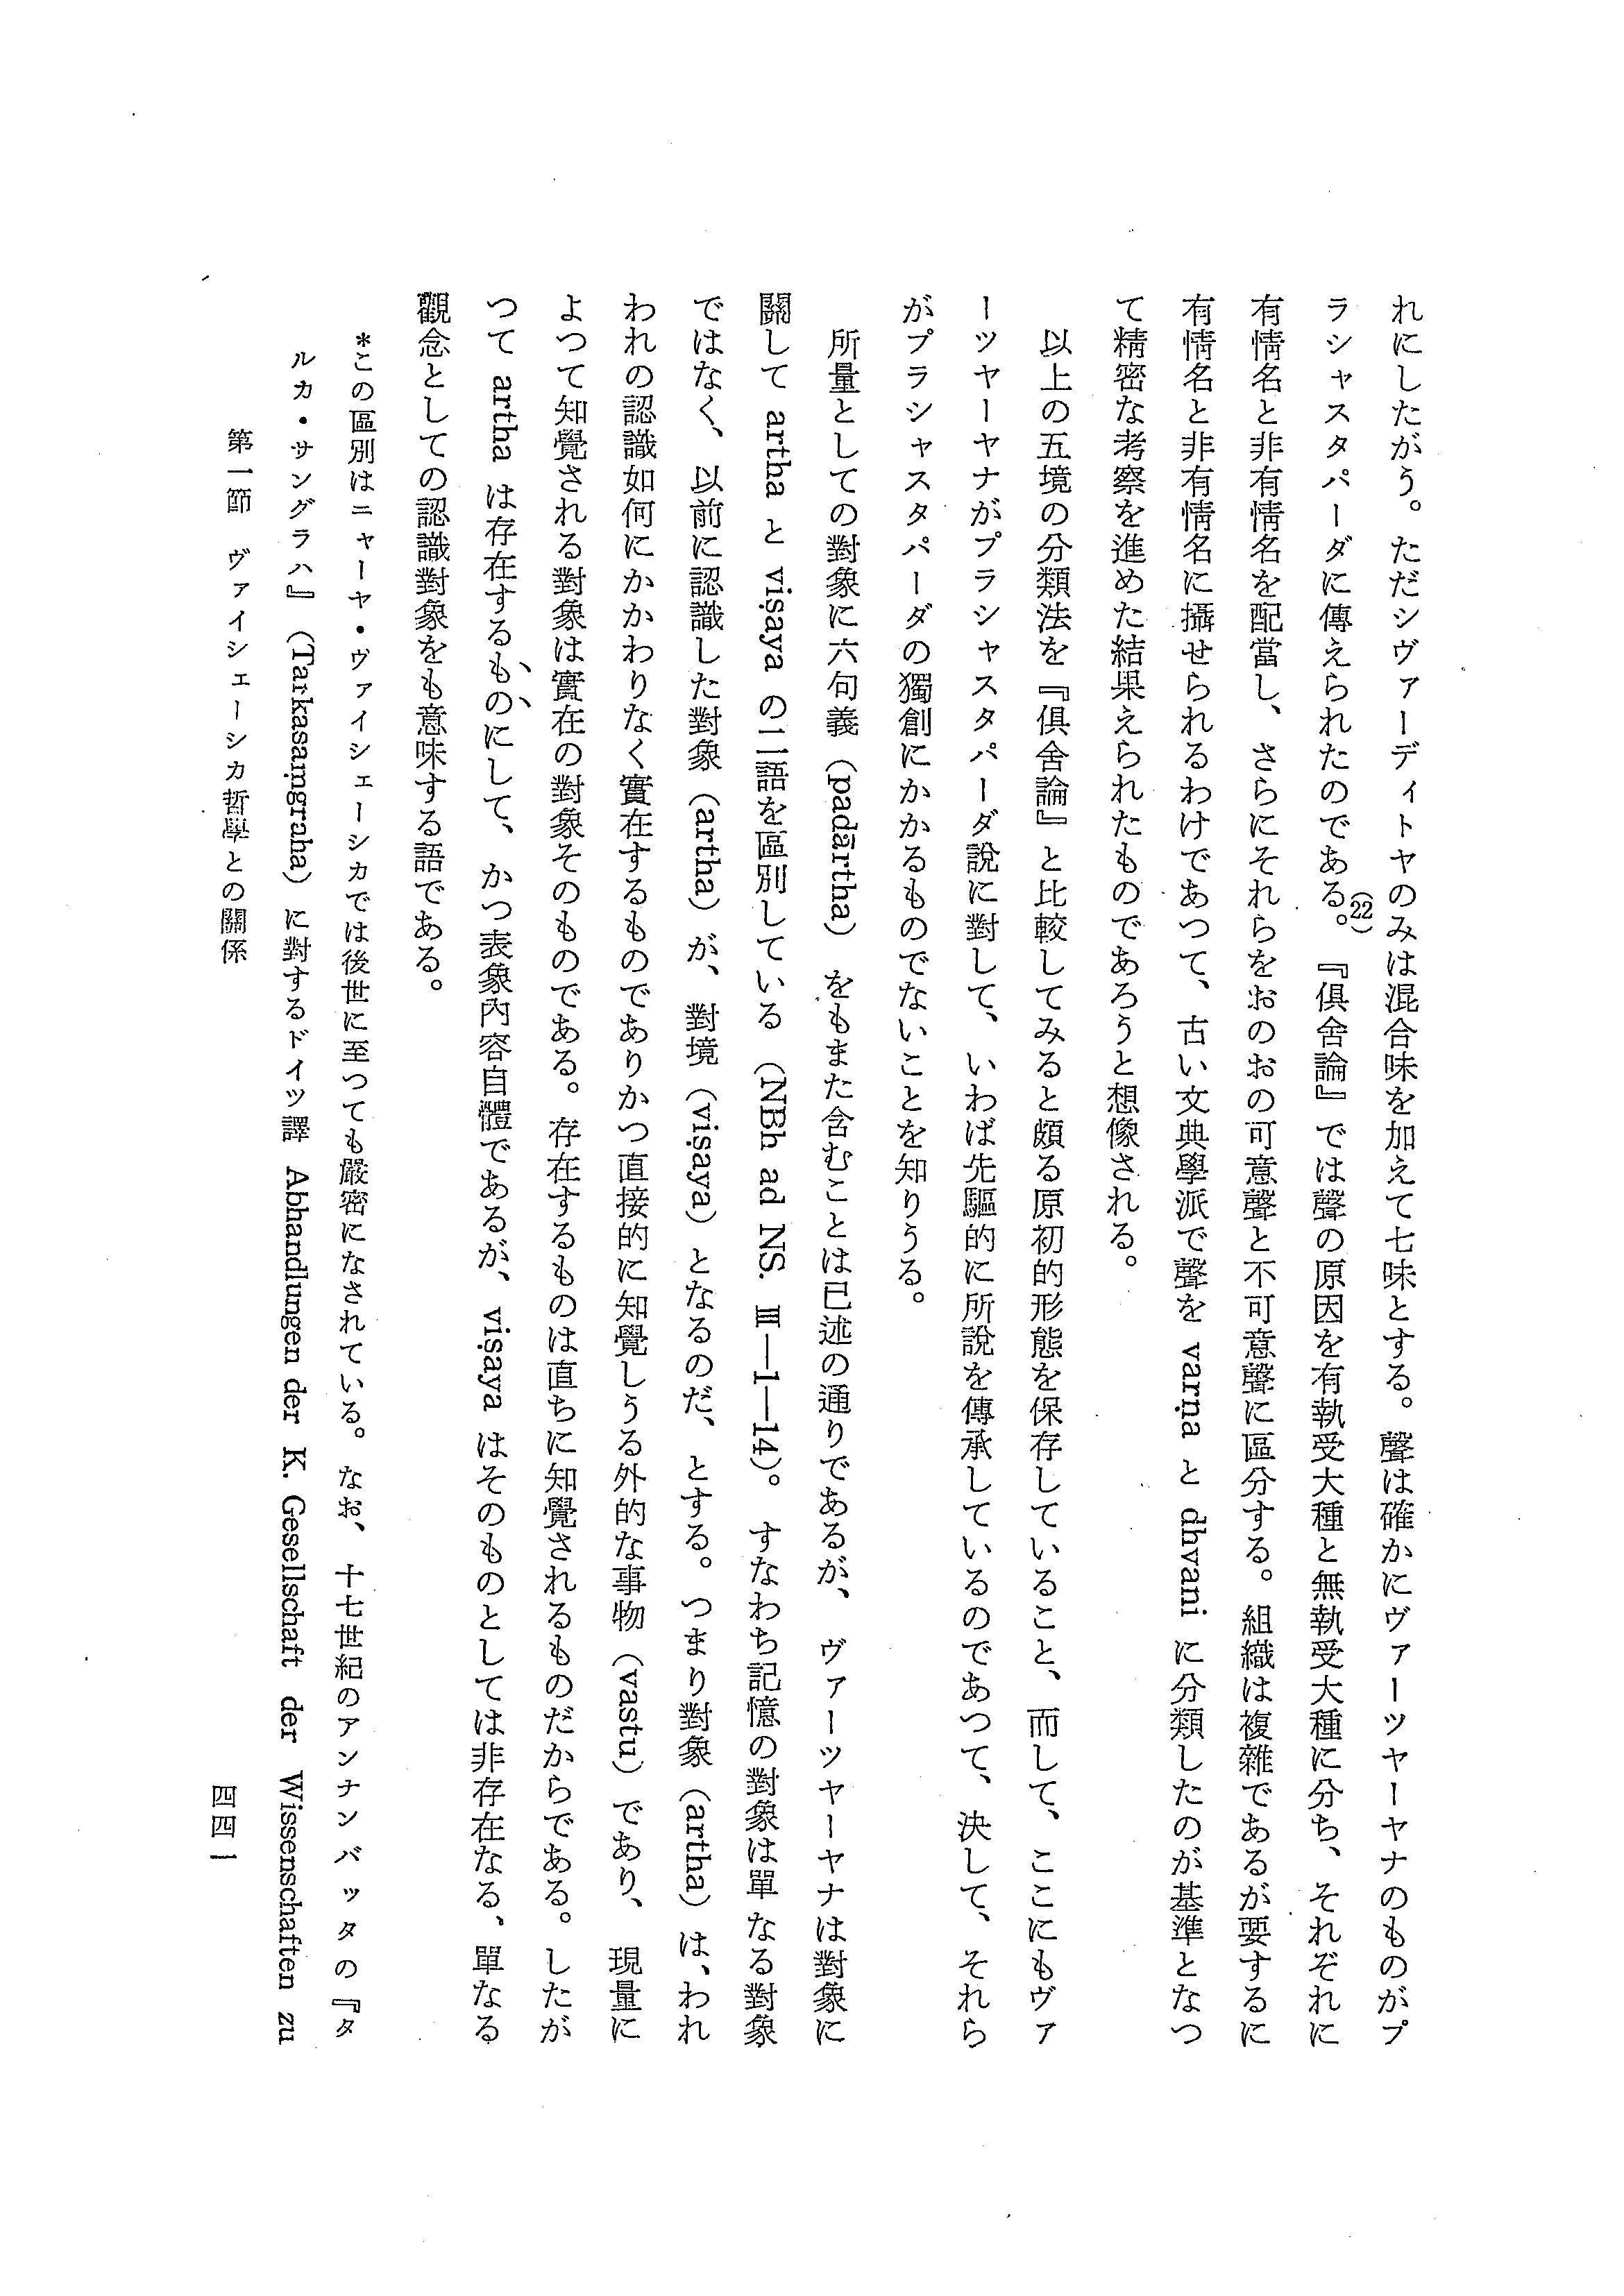 れにしたがう。ただシヴァーディトヤのみは混合味を加えて七味とする。聲は確かにヴァーツヤーヤナのものがプ
ラシャスタパーダに傳えられたのである。(22)『倶舍論』では聲の原因を有執受大種と無執受大種に分ち、それぞれに
有情名と非有情名を配當し、さらにそれらをおのおの可意聲と不可意聲に區分する。組織は複雜であるが要するに
有情名と非有情名に攝せられるわけであつて、古い文典學派で聲を varṇa と dhvani に分類したのが基準となつ
て精密な考察を進めた結果えられたものであろうと想像される。
以上の五境の分類法を『倶舍論』と比較してみると頗る原初的形態を保存していること、而して、ここにもヴァ
ーツヤーヤナがプラシャスタパーダ說に對して、いわば先驅的に所說を傳承しているのであつて、決して、それら
がプラシャスタパーダの獨創にかかるものでないことを知りうる。
所量としての對象に六句義（padārtha）をもまた含むことは已述の通りであるが、ヴァーツヤーヤナは對象に
關して artha と viṣaya の二語を區別している（NBh ad NS. Ⅲ—1—14）。すなわち記憶の對象は單なる對象
ではなく、以前に認識した對象（artha）が、對境（viṣaya）となるのだ、とする。つまり對象（artha）は、われ
われの認識如何にかかわりなく實在するものでありかつ直接的に知覺しうる外的な事物（vastu）であり、現量に
よつて知覺される對象は實在の對象そのものである。存在するものは直ちに知覺されるものだからである。したが
つて artha は存在するものにして、かつ表象內容自體であるが、viṣaya はそのものとしては非存在なる、單なる
觀念としての認識對象をも意味する語である。
＊この區別はニャーヤ・ヴァイシェーシカでは後世に至つても嚴密になされている。なお、十七世紀のアンナンバッタの『タ
ルカ・サングラハ』（Tarkasaṃgraha）に對するドイツ譯 Abhandlungen der K. Gesellschaft der Wissenschaften zu
第一節　ヴァイシェーシカ哲學との關係
四四一